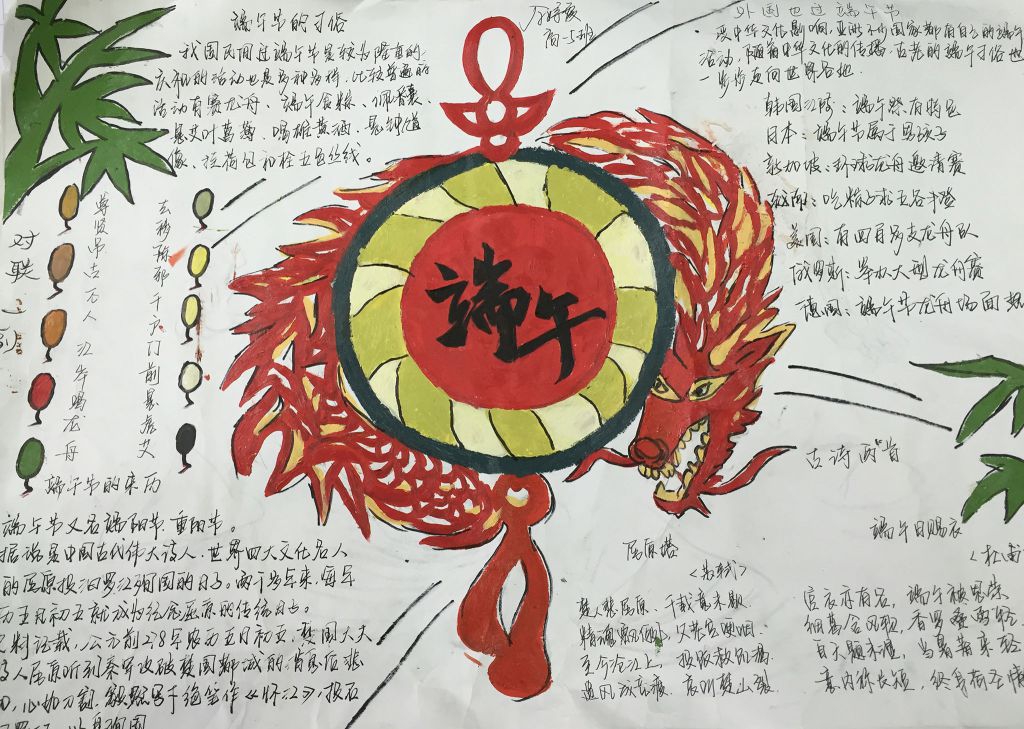 端午节的习俗
我国民间过端午节是较为隆重的.
庆祝的活动也是多种多样,比较普遍的
活动有赛龙舟、端午食粽、佩香囊、
悬艾叶菖蒲、喝雄黄酒、悬钟馗
像、拴荷包和栓五色丝线。
高一5班
外国也过端午节
受中华文化影响,亚洲不少国家都有自己的端午
活动,随着中华文化的传播,古老的端午习俗也
一步步走向世界各地.
韩国江陵:端午祭有特色
日本:端午节属于男孩子
新加坡:环球龙舟邀请赛
越南:吃粽子求五谷丰登
美国:有四百多支龙舟队
俄罗斯:举办大型龙舟赛
德国:端午节龙舟场面
端午
对联
尊贤吊古万人江华喝龙舟
去秽除邪千户门前悬虎艾
端午节的来历
端午节又名端阳节、重阳节。
据说是中国古代伟大诗人、世界四大文化名人
的屈原投汨罗江殉国的日子。两千多年来,每年
历五月初五就成为纪念屈原的传统日子。
料记载,公元前278年农历五月初五,楚国大夫
人屈原听到秦军攻破楚国都城的消息后悲
心如刀割,毅然写下绝笔作《怀沙》,投石
古诗两首
屈原塔
<苏轼>
楚人悲屈原,千载意未歇.
精魂飘何处,父老空哽咽.
至今沧江上,投饭救饥渴.
遗风成竞渡,哀叫楚山裂.
端午日赐衣
<杜甫
宫衣亦有名,端午被恩荣
细葛含风软,香罗叠雪轻
自天题不湿,当暑著来轻
意内称长短,终身荷圣情